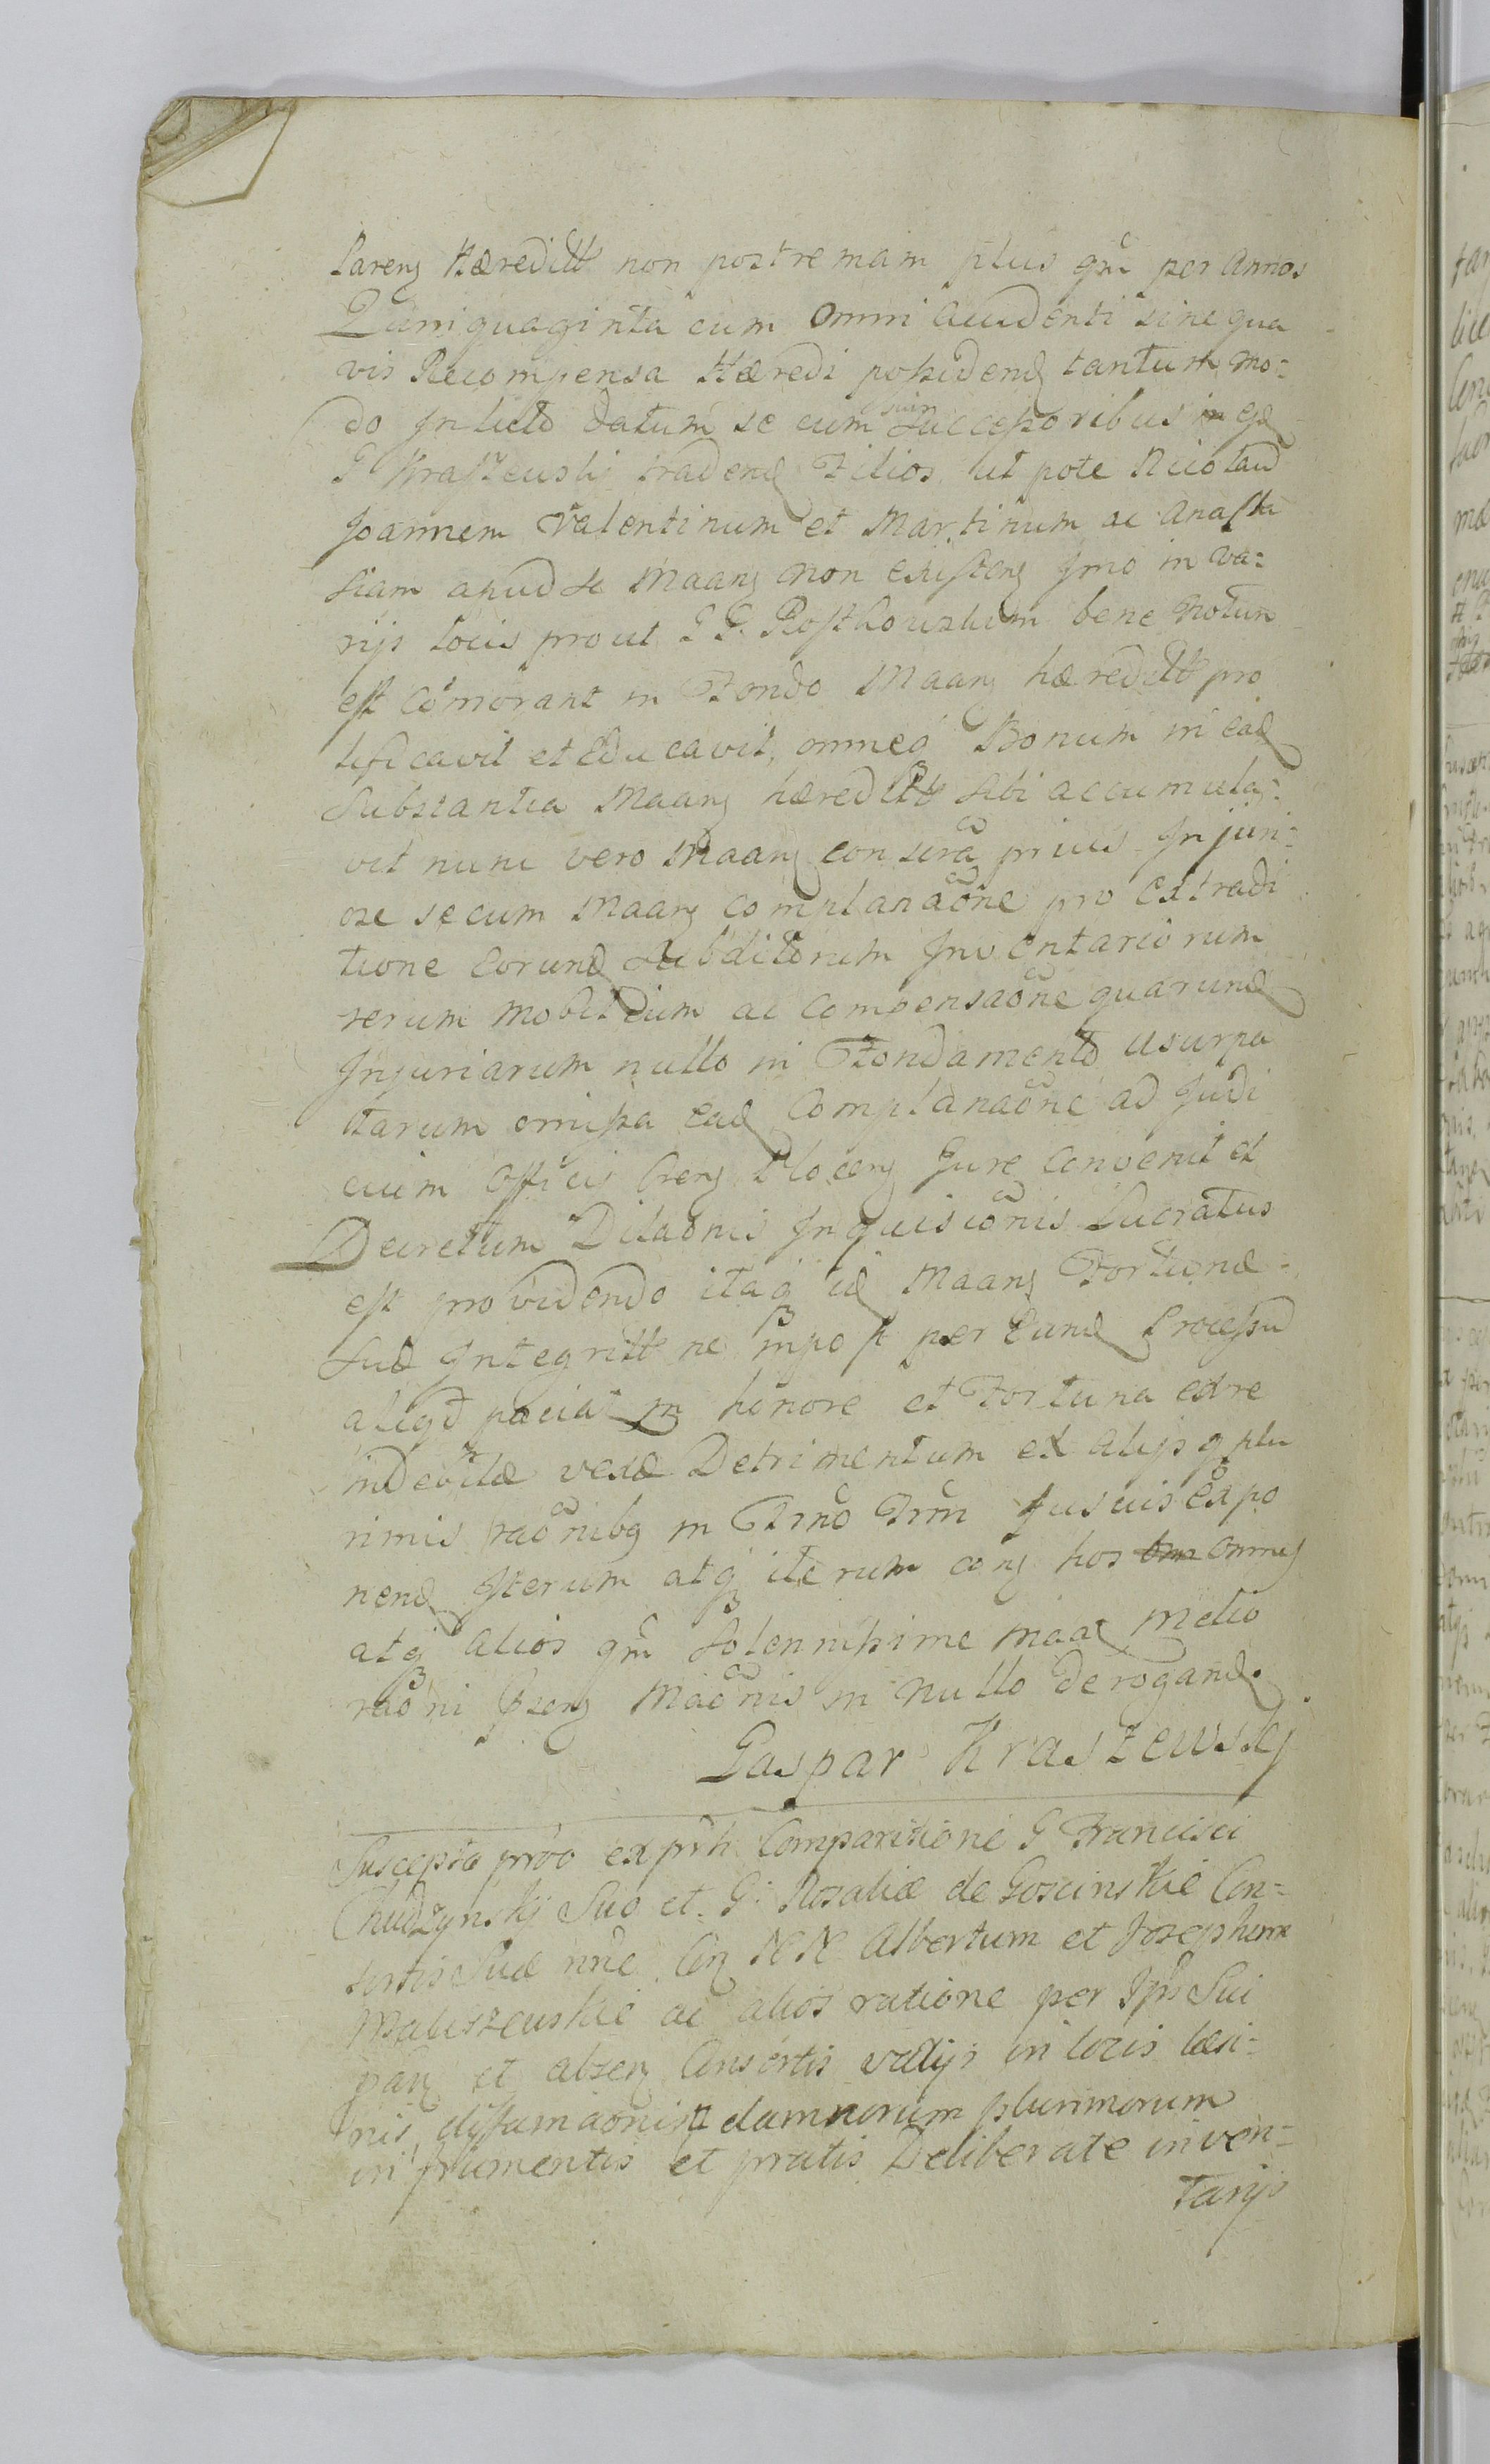 Parenς Hæreditt non postremam plus qm̃ per Annos
Quinquaginta cum Omni accidenti sine qua
vis Recompensa Hæredi possidenд tantum mo=
do Intuito datum se cum suis Successoribus in
G Kraszewski tradenд Filios ut pote Nicolaum
Joannem Valentinum et Martinum ac Anasta
siam apud se Maanς non existenς Imo in va=
rijs locis prout G G. Rosthowskim bene notum
est Com̃orant in Fondo Maanς hæreditt pro
lificavit et Educavit, omneq Bonum in eaд
Substantia Maanς hæreditt sibi accumula=
vit nunc vero Maanς prius Injuri=
ose secum Maanς complanaõne pro Extradi
tione Eorunд Subditorum Inventariorum
rerum mobilium ac compensaõne quarunд
Injuriarum nullo in Fondamento usurpa
tarum omissa eaд Complanaõne ad Judi
cium Officij Plocenς Jure convenit et
Decretum Dilaonis Inquisiõnis Lucratus
est providendo itaq Maanς Fortunæ
suæ Integritt ne per Eunд Processum
aliqd in honore et Fortuna ex re
indebitæ vexæ Detrimentum ex alijsq plu
rimis raõnibq in Trm̃ suis expo
nenд Iterum atq iterum hos omneς
atq Alios qm̃ solennissime maat melio
raõni Maõnis in nullo deroganд.
Gaspar Kraszewski
Suscepta ex Comparitione G Francisci
Chudzynski Suo et G: Rosaliæ de Goscinskie Con=
sortis Suæ nñe NN Albertum et Josephum
Maliszewskie ac alios ratione per Ips Sui
et absen Consortis varijs in locis læsi=
nis, diffamaõnis damnorum plurimorum
in frumentis et pratis Deliberate inven=
tarijs